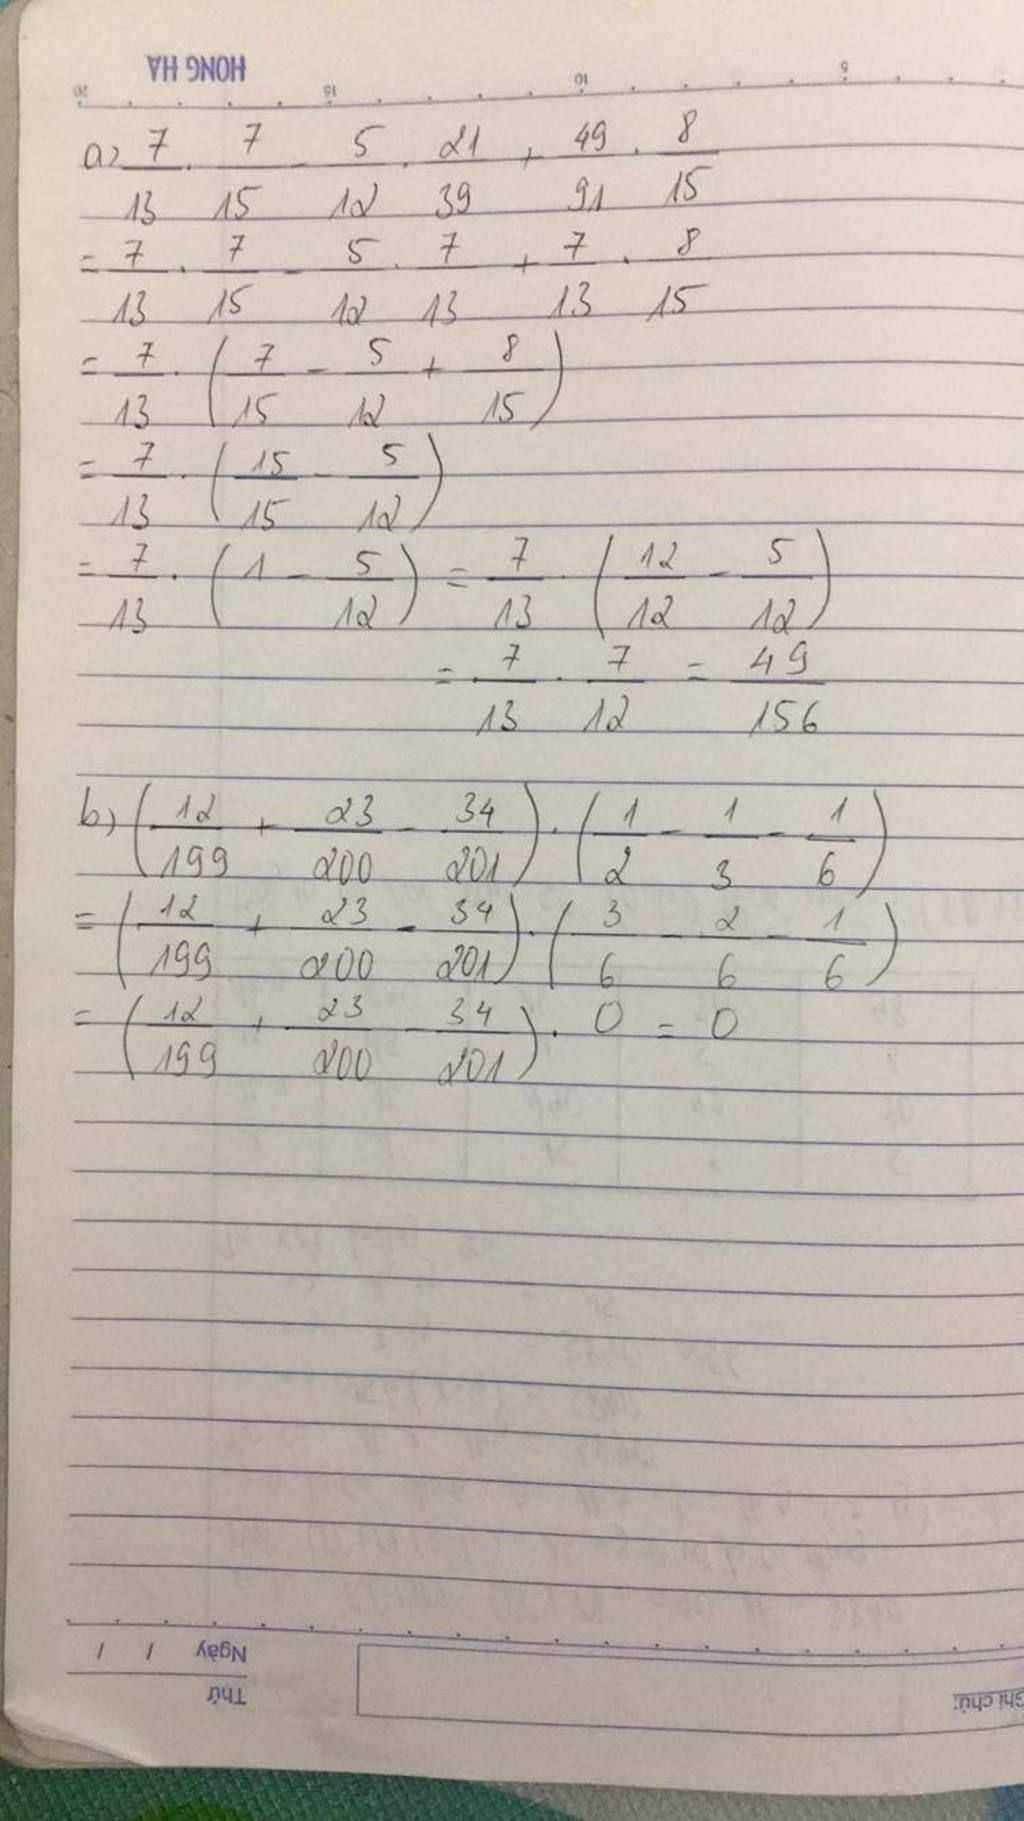 HONG HA
20 15 10 5
a) 7/13 . 7/15 - 5/12 . 21/39 + 49/91 . 8/15
= 7/13 . 7/15 - 5/12 . 7/13 + 7/13 . 8/15
= 7/13 . (7/15 - 5/12 + 8/15)
= 7/13 . (15/15 - 5/12)
= 7/13 . (1 - 5/12) = 7/13 . (12/12 - 5/12)
= 7/13 . 7/12 = 49/156
b) (12/199 + 23/200 - 34/201) . (1/2 - 1/3 - 1/6)
= (12/199 + 23/200 - 34/201) . (3/6 - 2/6 - 1/6)
= (12/199 + 23/200 - 34/201) . 0 = 0
Ngày / /
Thứ
Ghi chú: